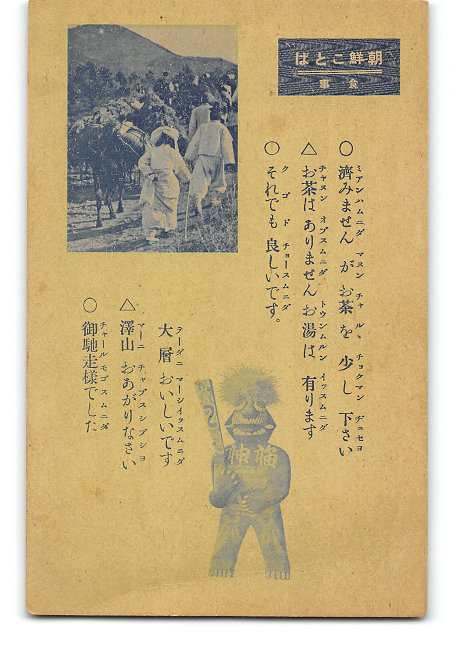 朝鮮ことば
食事
ミアンハムニダ マヌン チャル、チョクマン ヂュセヨ
○ 濟みません が お茶 を 少し 下さい
チャヌン オプスムニダ トウンムルン イッスムニダ
△ お茶は ありません お湯は 有ります
クゴド チョースムニダ
○ それでも 良しいです。
テーダニ マーシイッスムニダ
大層 おいしいです
マーニ チャプスシプシヨ
△ 澤山 おあがりなさい
チャール モゴスムニダ
○ 御馳走様でした